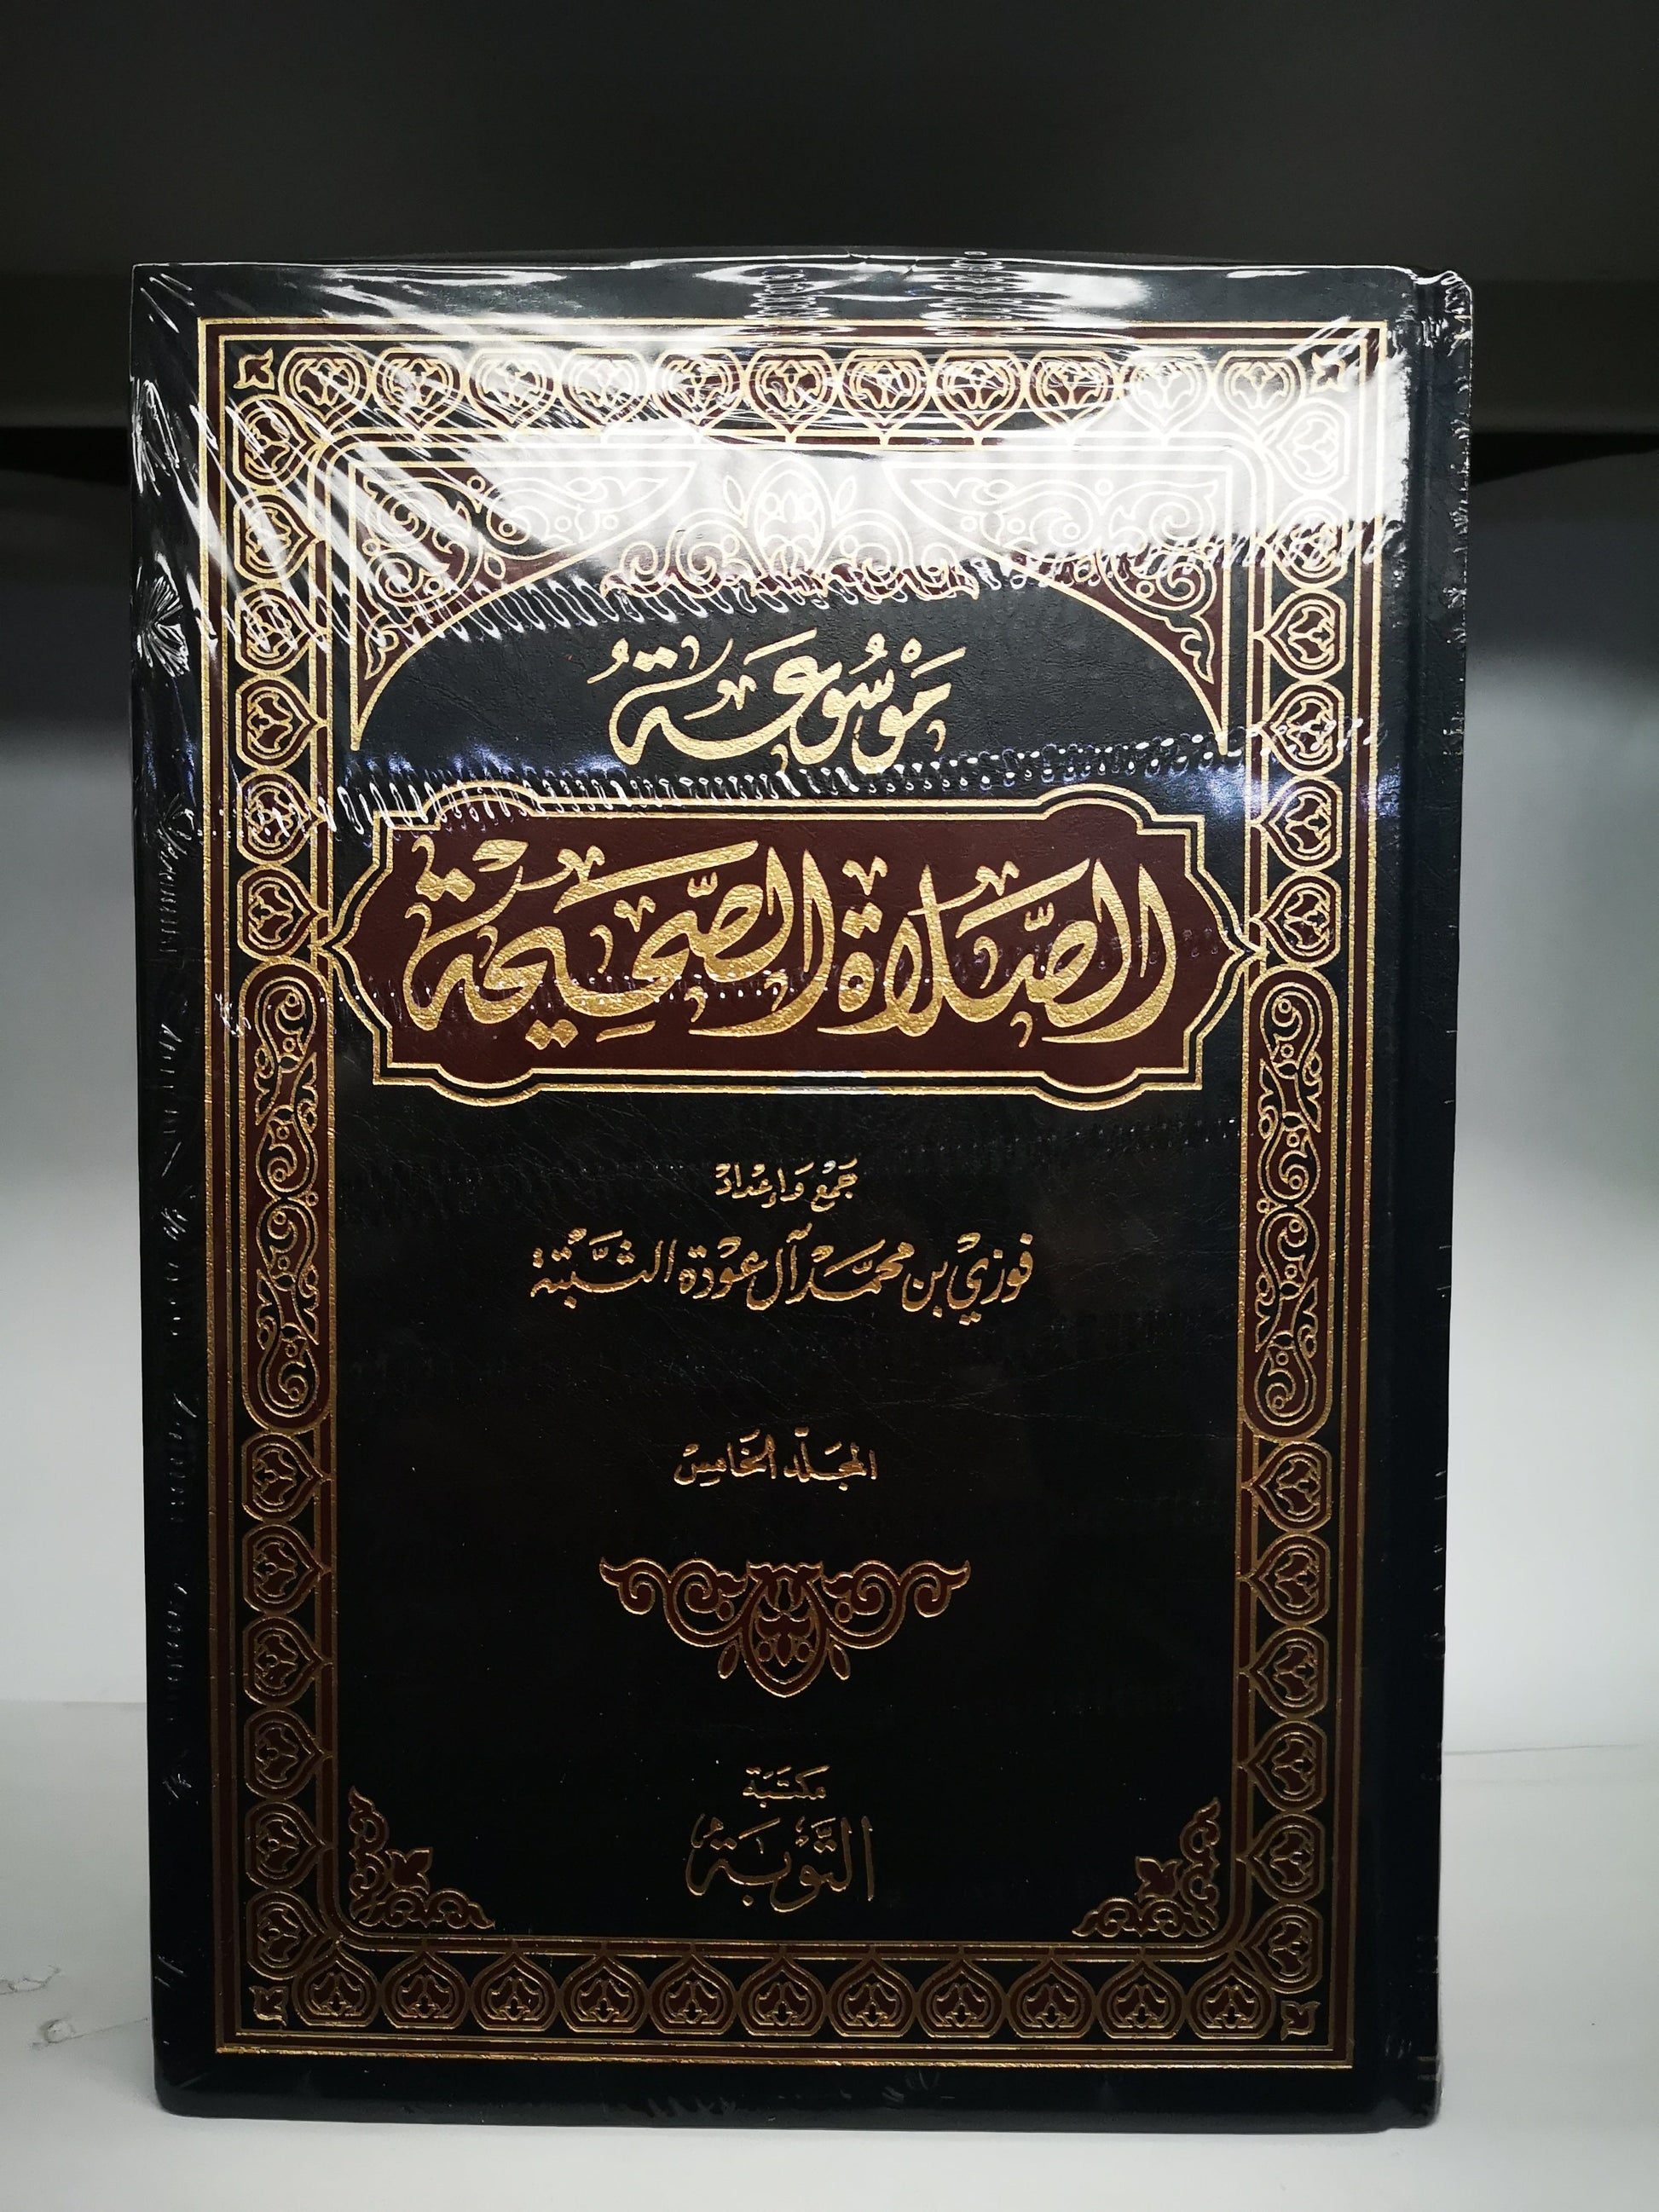 مَوْسُوعَةُ
الصَّلَاةِ الصَّحِيحَةِ
جَمْعُ وَإِعْدَادُ
فَوْزِيّ بْن مُحَمَّد آل عَوْدَة الثَّبَتِيّة
المُجَلَّد الخَامِسْ
مَكْتَبَة
التَّوْبَة